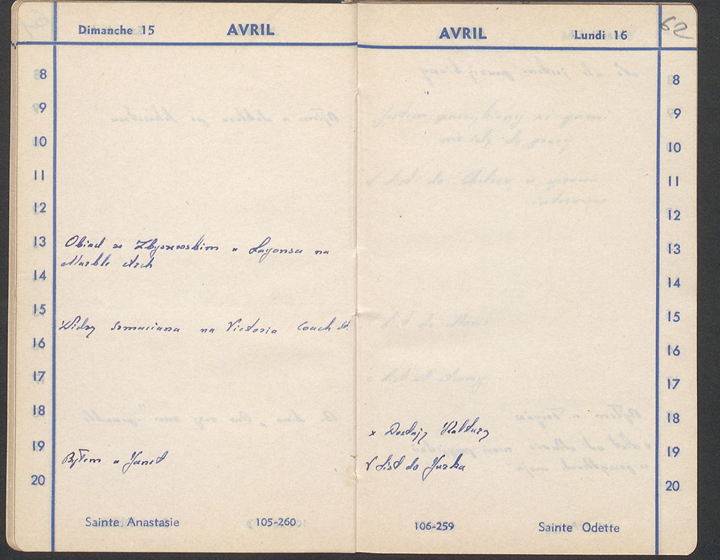 Dimanche 15 AVRIL
8
9
10
11
12
13 Obiad ze Zbyszewskim u Lyonsa na
14 Marble Arch
15 Widzę Szmaciana na Victoria Coach St.
16
17
18
19 Byłem u Janet
20
Sainte Anastasie 105-260
AVRIL Lundi 16 62
8
9
10
11
12
13
14
15
16
17
18 x Dostaję Kulturę
19 V List do Jurka
20
106-259 Sainte Odette